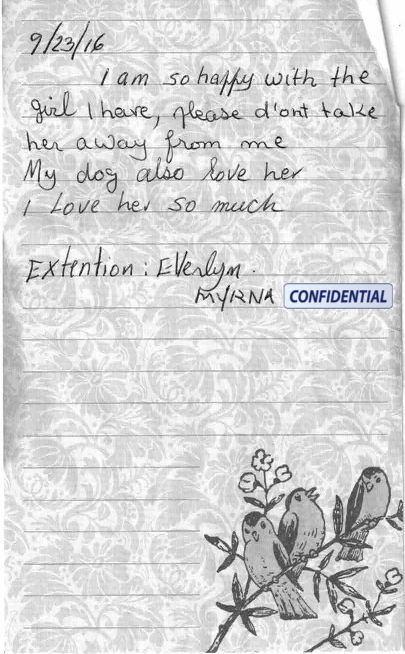 9/23/16
I am so happy with the
girl I have, please d'ont take
her away from me
My dog also love her
I Love her so much
Extention : Everlym.
MYRNA CONFIDENTIAL